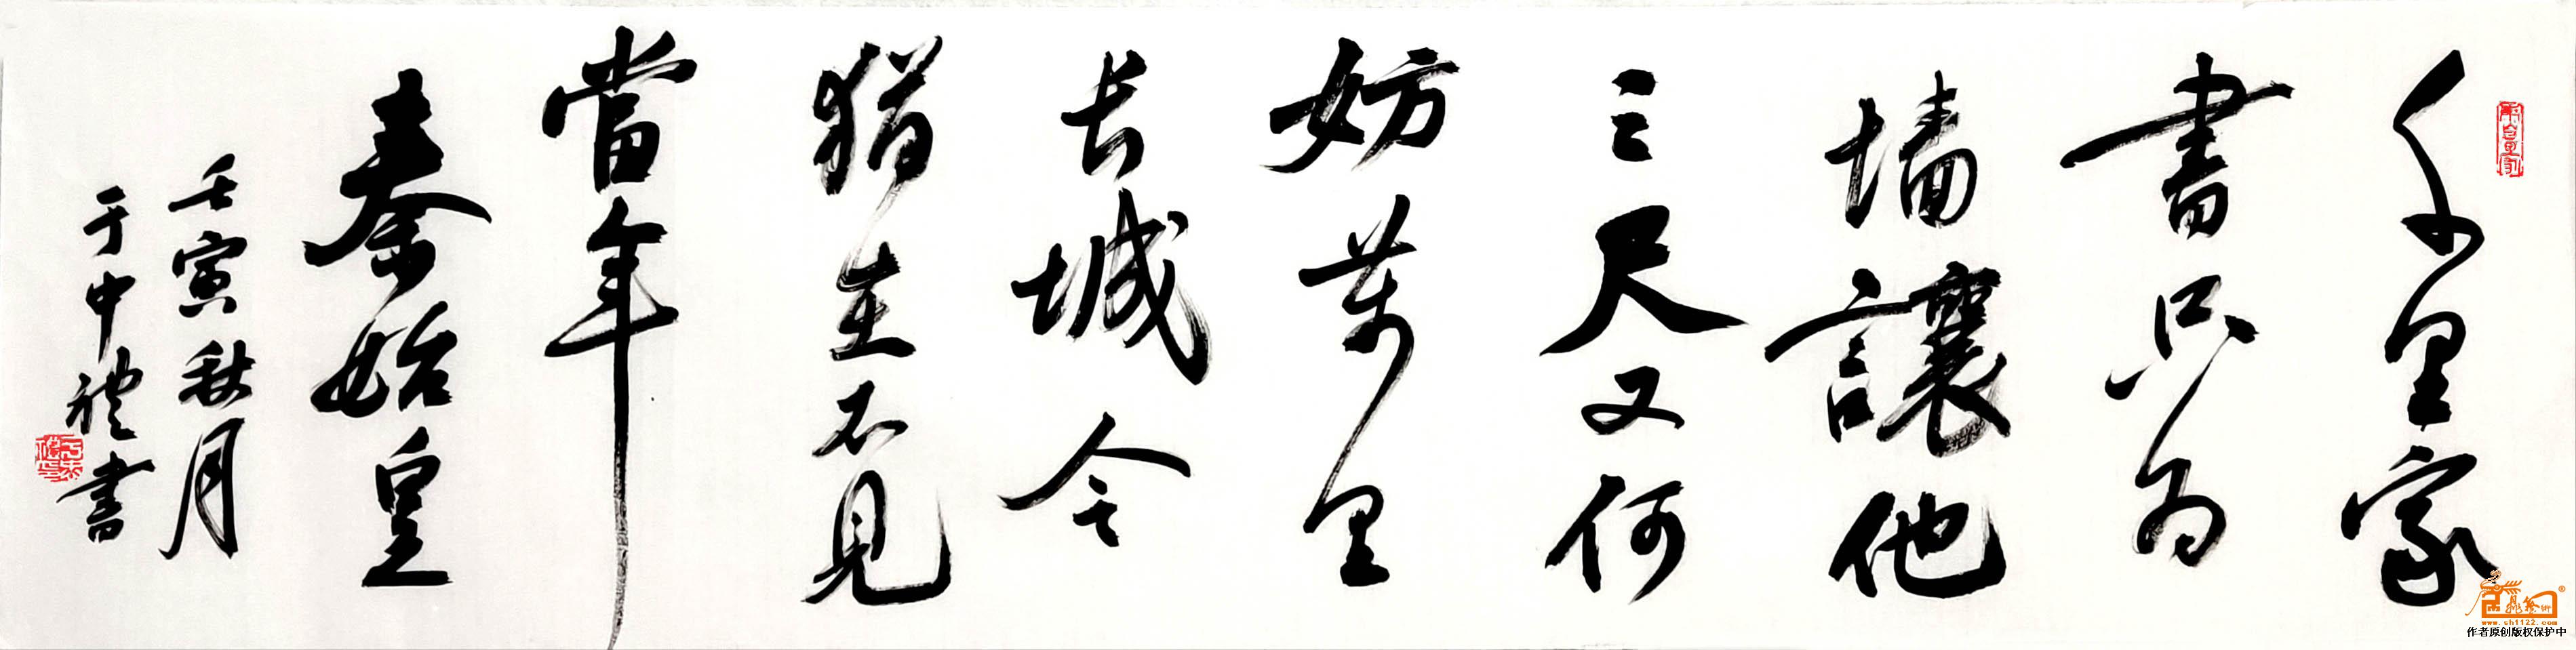 千里家
書只為
墙讓他
三尺又何
妨萬里
长城今
猶在不見
當年
秦始皇
壬寅秋月
于中禮書
www.sh1122.com
作者原创版权保护中